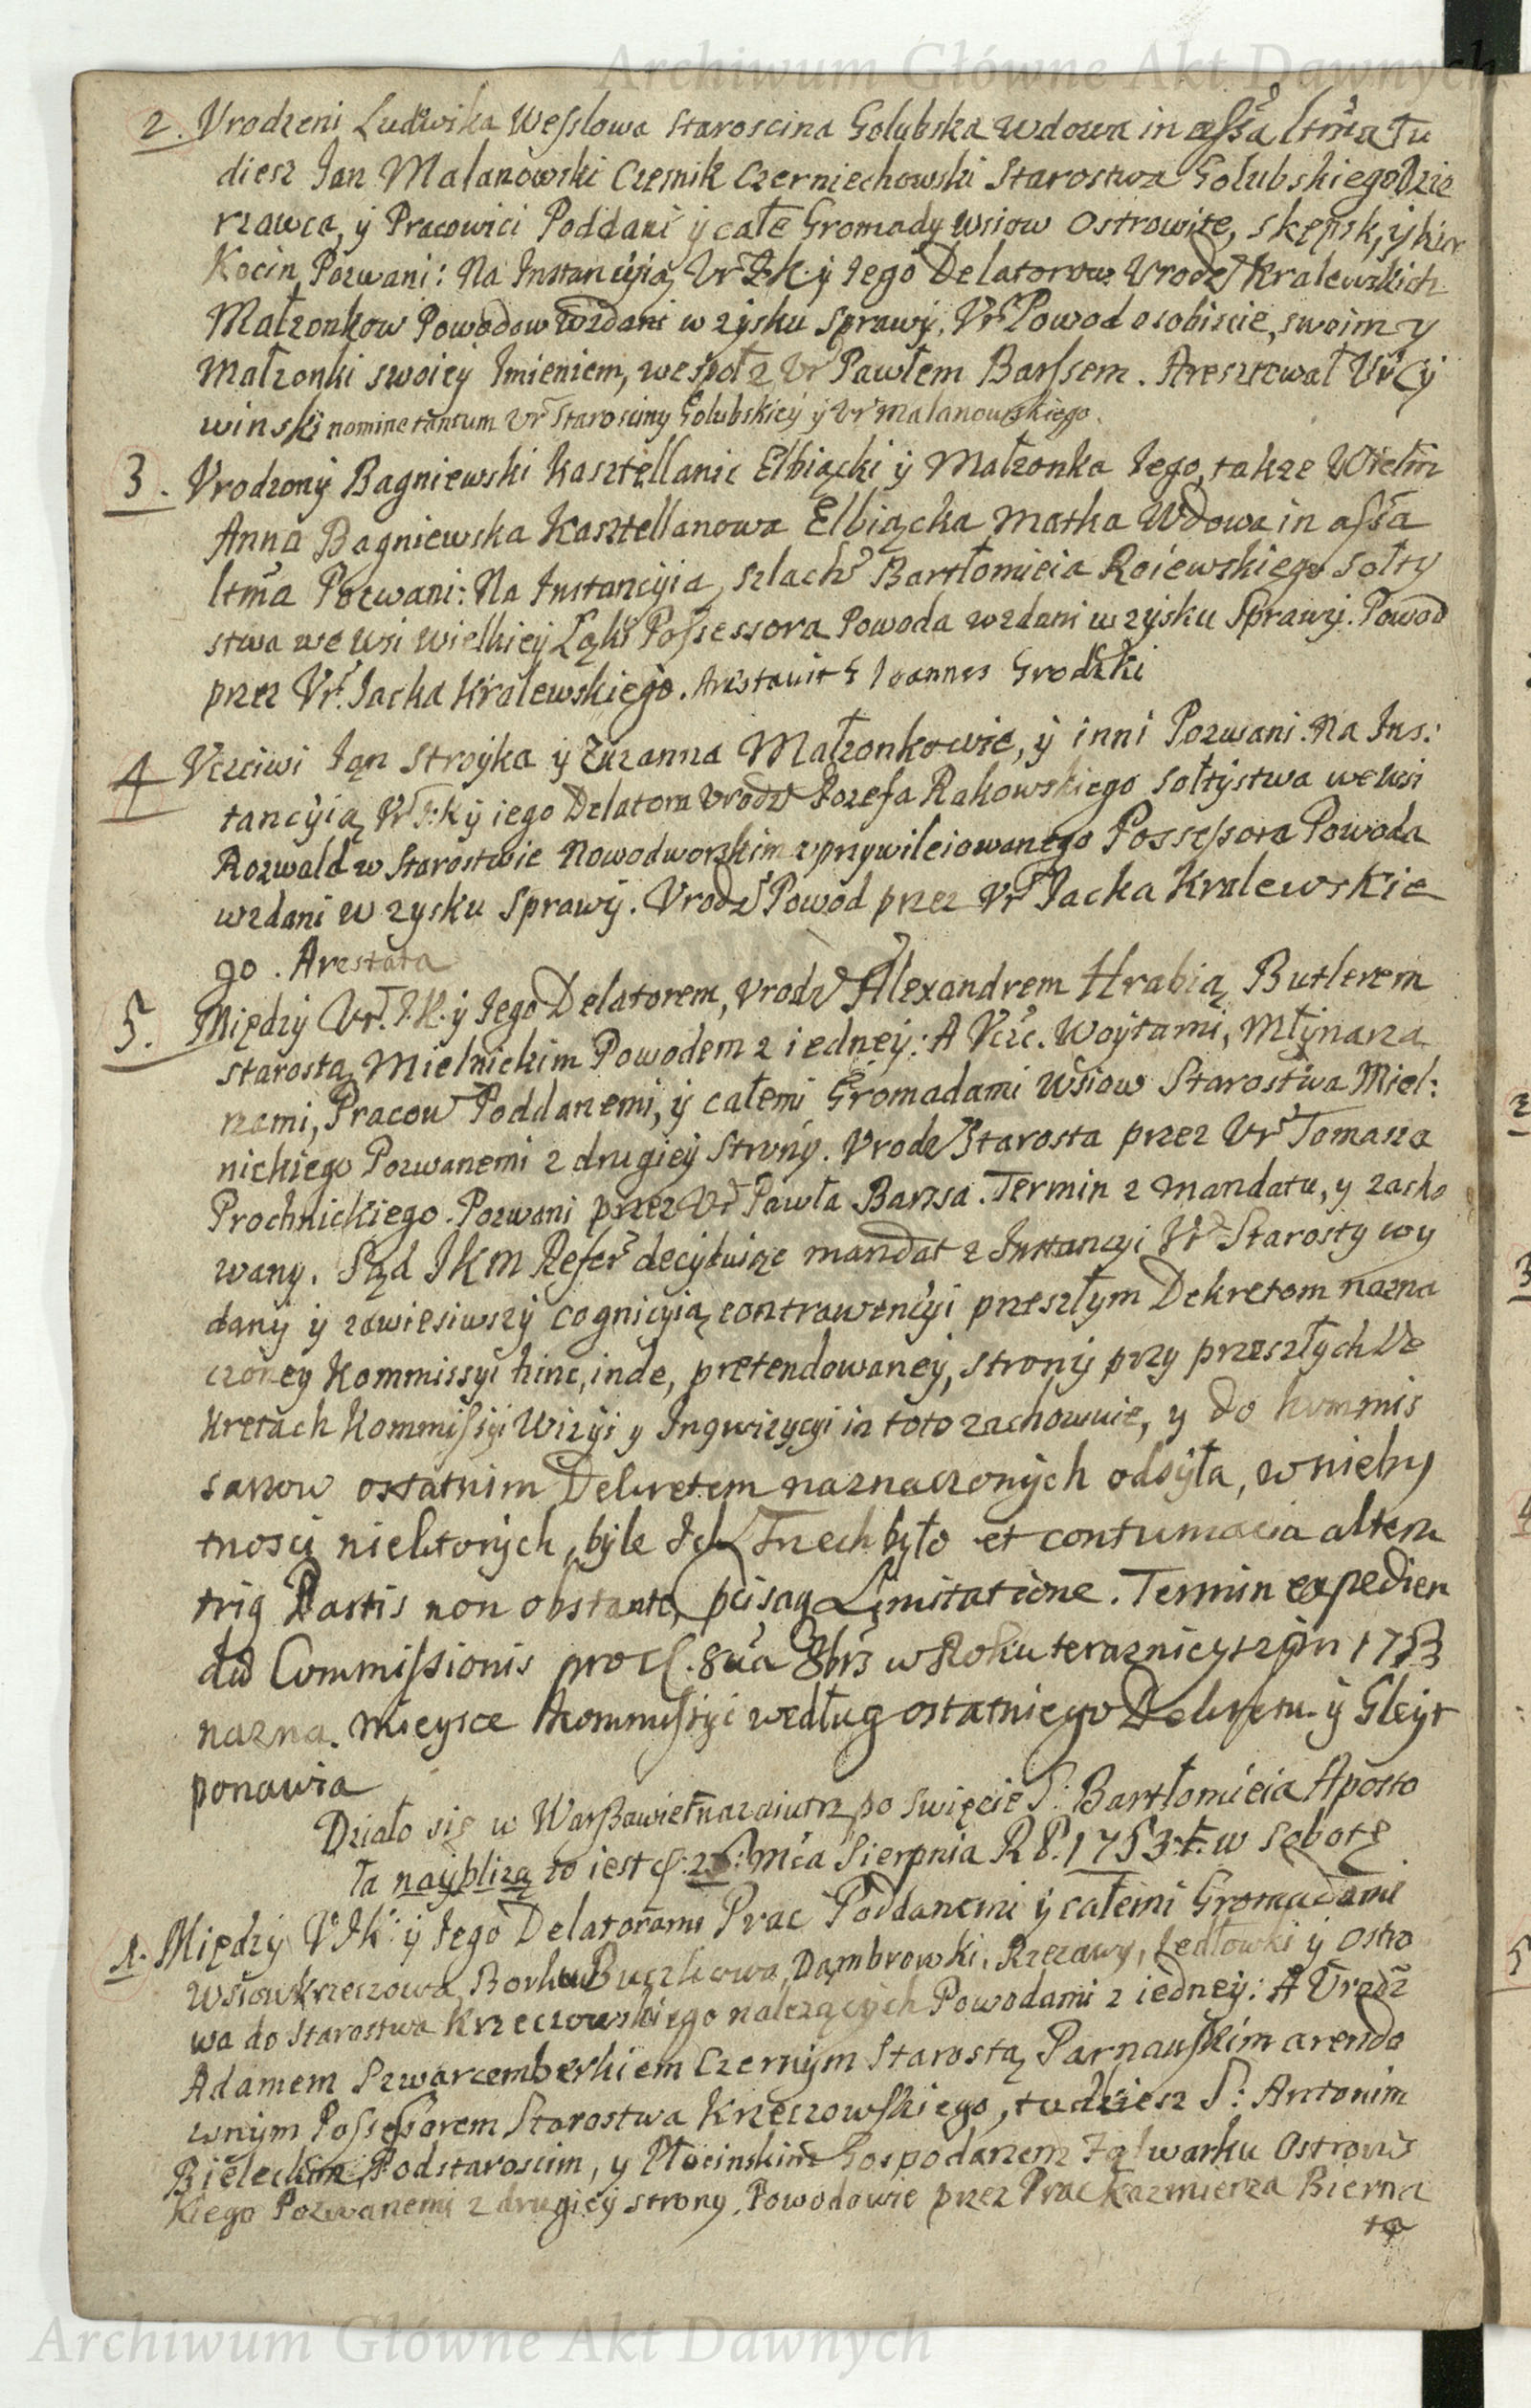 Archiwum Główne Akt Dawnych
2. Vrodzeni Ludwika Wesslowa Staroscina Golubska Wdowa in assa ltma Tu
diesz Jan Malanowski Czesnik Czerniechowski Starostwa Golubskiego Dzie
rzawca, ÿ Pracowici Poddani ÿ całe Gromady wsiow Ostrowite, Skępsk, ÿ Kur
Kocin Pozwani: Na Instancyią Vr JK ÿ Jego Delatorow Vrodz Kralewskich
Małzonkow Powodow wzdani w zysku Sprawÿ. Vr Powod osobiscie, swoim y
Małzonki swoieÿ Imieniem, wespoł z Vr Pawłem Barssem. Aresztował Vr Cÿ
winski nomine tantum Vr Starosciny Golubskieÿ ÿ Vr Malanowskiego.
3. Vrodzonÿ Bagniewski Kasztellanic Elbiącki ÿ Małzonka Jego, takze Wielm
Anna Bagniewska Kasztellanowa Elbiącka Matka Wdowa in assa
ltma Pozwani: Na Instancyią Szlach Bartłomieia Roiewskiego Sołty
stwa we wsi Wielkieÿ Łąki Possessora Powoda wzdani w zysku Sprawÿ. Powod
przez Vr. Jacka Kralewskiego. Arestavit G Joannes Grodzki
4 Vczciwi Jan Stroÿka ÿ Zuzanna Małzonkowie, ÿ inni Pozwani. Na Ins:
tancÿią Vr J:K ÿ iego Delatora Vrodz Jozefa Rakowskiego Sołtÿstwa we wsi
Rozwald w Starostwie Nowodworskim vprzywileiowanego Possessora Powoda
wzdani w zysku Sprawÿ. Vrodz Powod przez Vr Jacka Kralewskie
go. Arestata
5. Międzÿ Vr. J.K. ÿ Jego Delatorem, Vrodz Alexandrem Hrabią Butlerem
Starostą Mielnickim Powodem z iedneÿ: A Vczc. Woÿtami, Młÿnarza
rzami, Pracow Poddanemi, ÿ całemi Gromadami Wsiow Starostwa Miel:
nickiego Pozwanemi z drugieÿ Stronÿ. Vrodz Starosta przez Vr Tomasza
Prochnickiego. Pozwani przez Vr Pawła Barssa. Termin z mandatu, y zacho
wany. Sąd JKM Refer decÿduiąc mandat z Instancyi Vr Starosty wy
danÿ ÿ zawiesiwszÿ cognicÿią contrawencÿi przeszłym Dekretom nazna
czoney Kommissyi hinc, inde, pretendowaney, stronÿ przy przeszłych De
kretach Kommissÿi Wizÿi y Inqwizycyi in toto zachowuie, y do kommis
sarzow ostatnim Dekretem naznaczonÿch odsÿła, w niebÿ
tnosci niektorÿch, bÿle Ich Trzech bÿło et contumacia alteru
trig Partis non obstante, Termin expedien
Commissionis 8va 8bris w Roku teraznieyszÿm 1753
nazna. Mieysce Kommissÿi według ostatniego Dekretu. ÿ Gleÿt
ponawia
Działo się w Warszawie nazaiutrz po Swięcie S. Bartłomieia Aposto
ła naÿblizą to iest d. 25: Mca Sierpnia R P. 1753.t. w Sobotę
1. Międzÿ VJK ÿ Jego Delatorami Prac Poddanemi ÿ całemi Gromadami
Wsiow Krzeczowa, Borku Buczkowa, Dąmbrowki, Rzezawy, Jedłowki ÿ Ostro
wa do Starostwa Krzeczowskiego nalezącÿch Powodami z iedneÿ: A Vrodz
Adamem Szwarcemberkiem Czernÿm Starostą Parnauskim arendo
wnÿm Possessorem Starostwa Krzeczowskiego, tudziesz S: Antonim
Bieleckim Podstaroscim, y Płocinskim Gospodarzem Falwarku Ostrows
kiego Pozwanemi z drugieÿ strony. Powodowie przez Prac Kazmierza Bierna
ta
Archiwum Główne Akt Dawnych